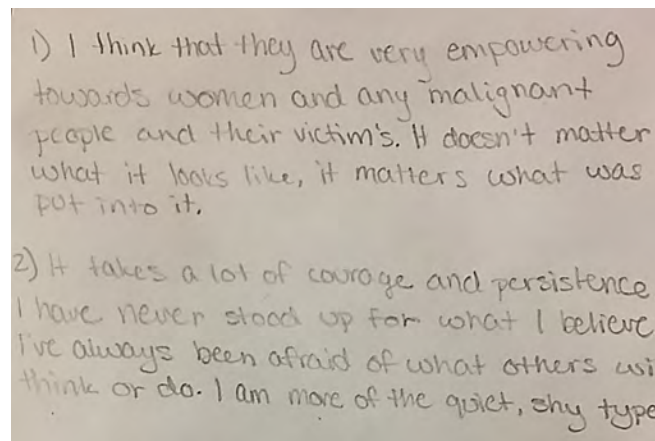 1) I think that they are very empowering
towards women and any malignant
people and their victim's. It doesn't matter
what it looks like, it matters what was
put into it.
2) It takes a lot of courage and persistence
I have never stood up for what I believe
I've always been afraid of what others wi
think or do. I am more of the quiet, shy type